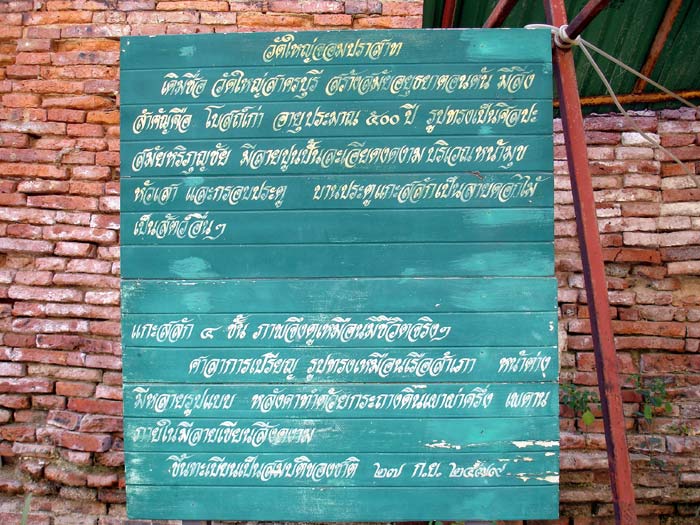 วัดใหญ่จอมปราสาท
เดิมชื่อ วัดใหญ่สาครบุรี สร้างสมัยอยุธยาตอนต้น มีสิ่ง
สำคัญคือ โบสถ์เก่า อายุประมาณ ๕๐๐ ปี รูปทรงเป็นศิลปะ
สมัยหริภุญชัย มีลายปูนปั้นละเอียดงดงาม บริเวณหน้ามุข
หัวเสา และกรอบประตู บานประตูแกะสลักเป็นลายดอกไม้
เป็นสัตว์อื่นๆ
แกะสลัก ๔ ชั้น ภาพจึงดูเหมือนมีชีวิตจริงๆ
ศาลาการเปรียญ รูปทรงเหมือนเรือสำเภา หน้าต่าง
มีหลายรูปแบบ หลังคาทำด้วยกระเบื้องดินเผา เพดาน
ภายในมีลายเขียนสีงดงาม
ขึ้นทะเบียนเป็นสมบัติของชาติ ๒๗ ก.ย. ๒๔๗๙